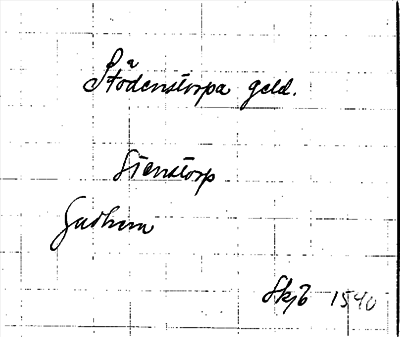 Stodenstorpa geld.
Stenstorp
Gudhem
Skjb 1540